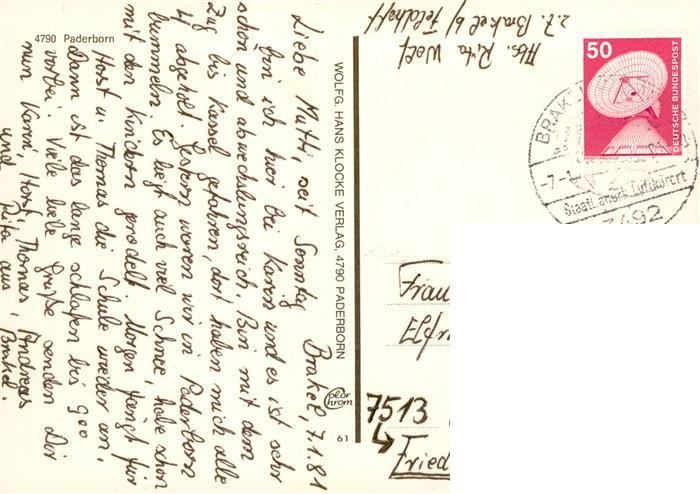 4790 Paderborn
Brakel, 7.1.81
Liebe Mutti, seit Sonntag
bin ich hier bei Karin und es ist sehr
schön und abwechslungsreich. Bin mit dem
Zug bis Kassel gefahren, dort haben mich alle
4 abgeholt. Gestern waren wir in Paderborn
bummeln. Es liegt auch viel Schnee, habe schon
mit den Kindern gerodelt. Morgen fängt für
Horst u. Thomas die Schule wieder an.
Dann ist das lange schlafen bis 9⁰⁰
vorbei. Viele liebe Grüße senden Dir
nun Karin, Horst, Thomas, Andreas
und Rita aus Brakel.
WOLFG. HANS KLOCKE VERLAG, 4790 PADERBORN
Color
Chrom
61
Abs. Rita Wolf
z.Z. Brakel b/ Feldhoff
50
DEUTSCHE BUNDESPOST
ERDFUNKSTELLE
BRAKEL
-7.-1.
Staatl. anerk. Luftkurort
3492
Frau
Elfr
7513
Fried